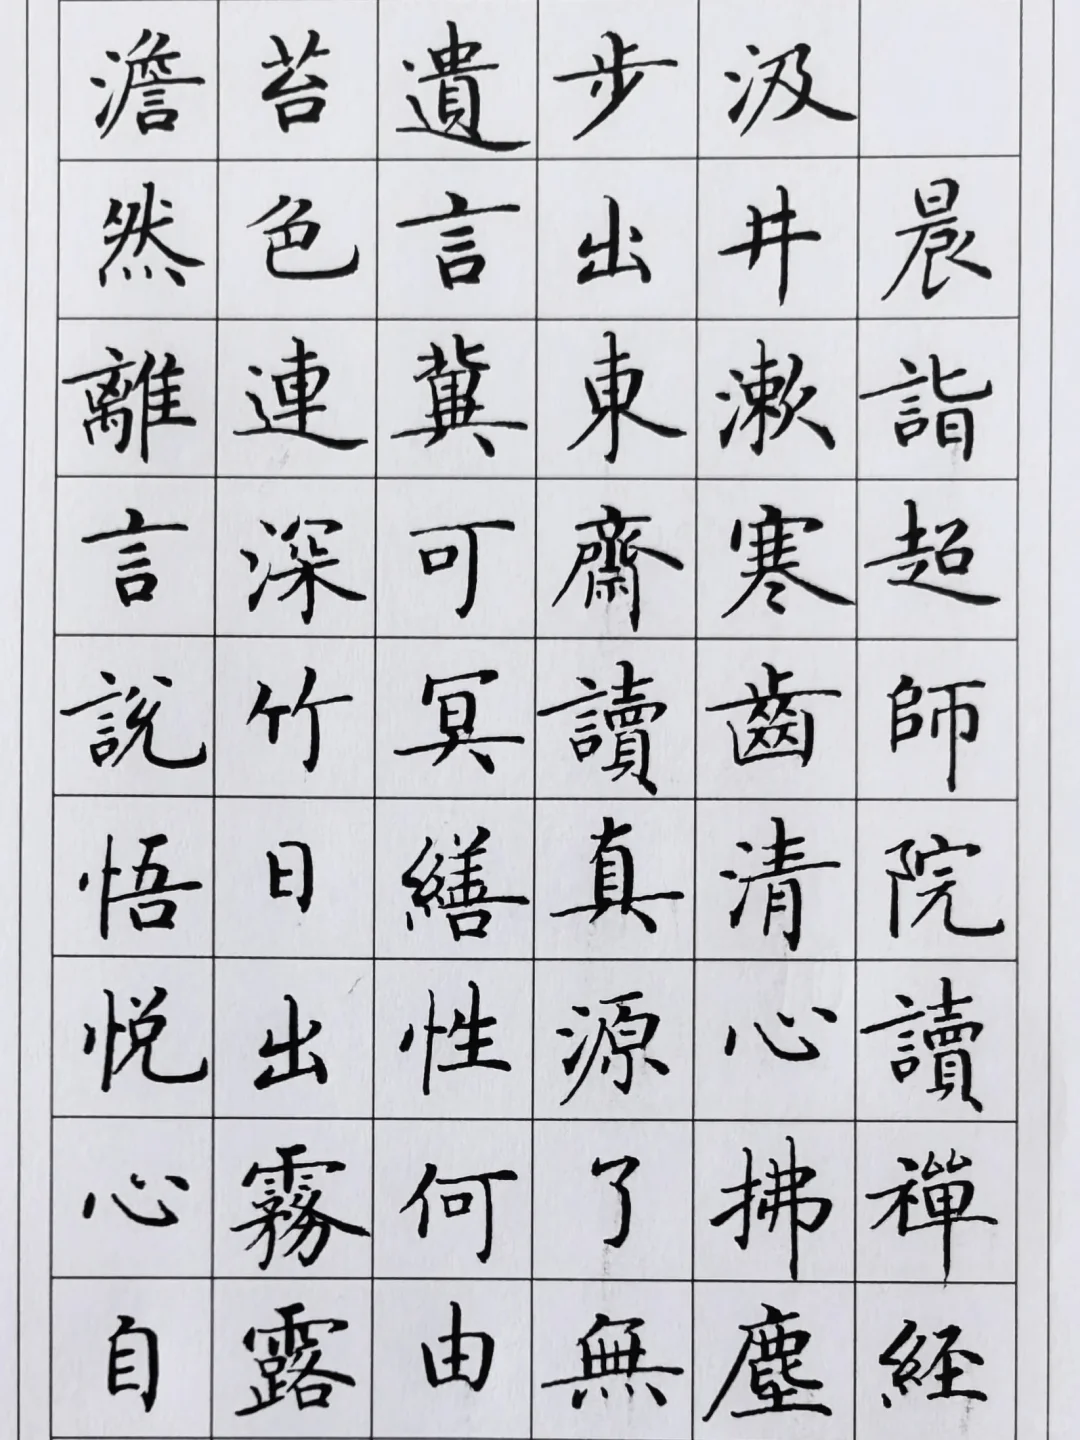 晨詣超師院讀禪経
汲井漱寒齒清心拂塵
步出東齋讀真源了無
遺言冀可冥繕性何由
苔色連深竹日出霧露
澹然離言說悟悅心自